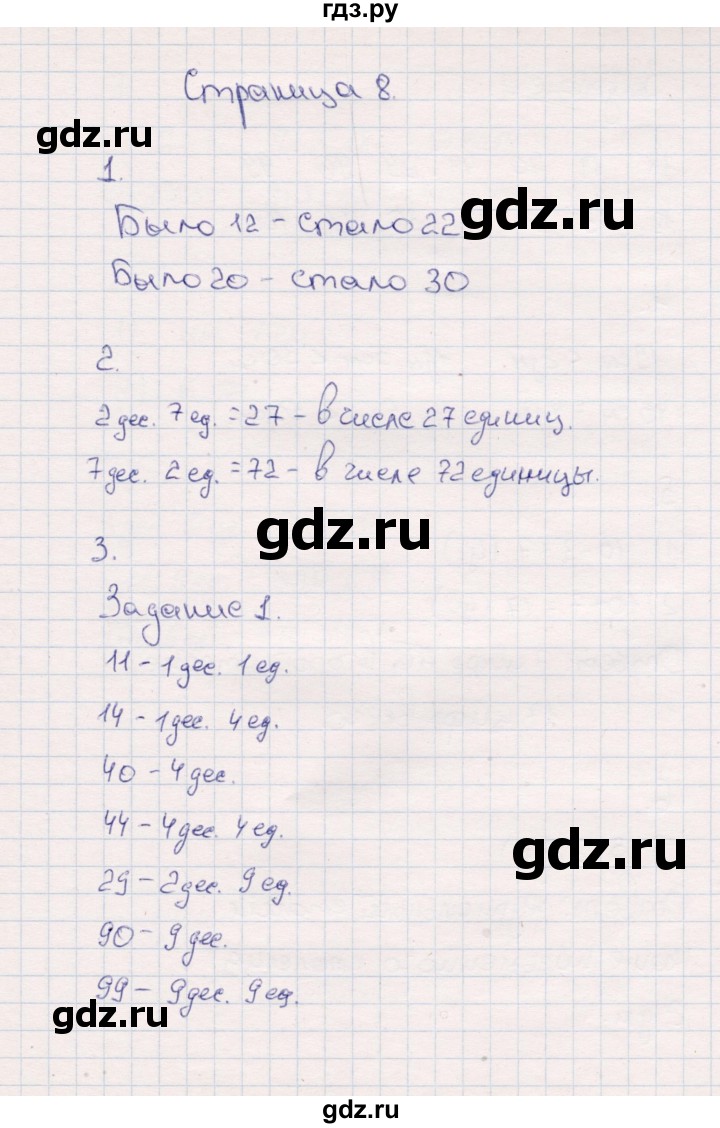 гдз.ру
Страница 8.
gdz.ru
1.
Было 12 - стало 22
gdz.ru
Было 20 - стало 30
2.
2 дес. 7 ед. = 27 - в числе 27 единиц.
7 дес. 2 ед. = 72 - в числе 72 единицы.
gdz.ru
3.
Задание 1.
11 - 1 дес. 1 ед.
14 - 1 дес. 4 ед.
40 - 4 дес.
44 - 4 дес. 4 ед.
gdz.ru
29 - 2 дес. 9 ед.
90 - 9 дес.
99 - 9 дес. 9 ед.
gdz.ru
gdz.ru